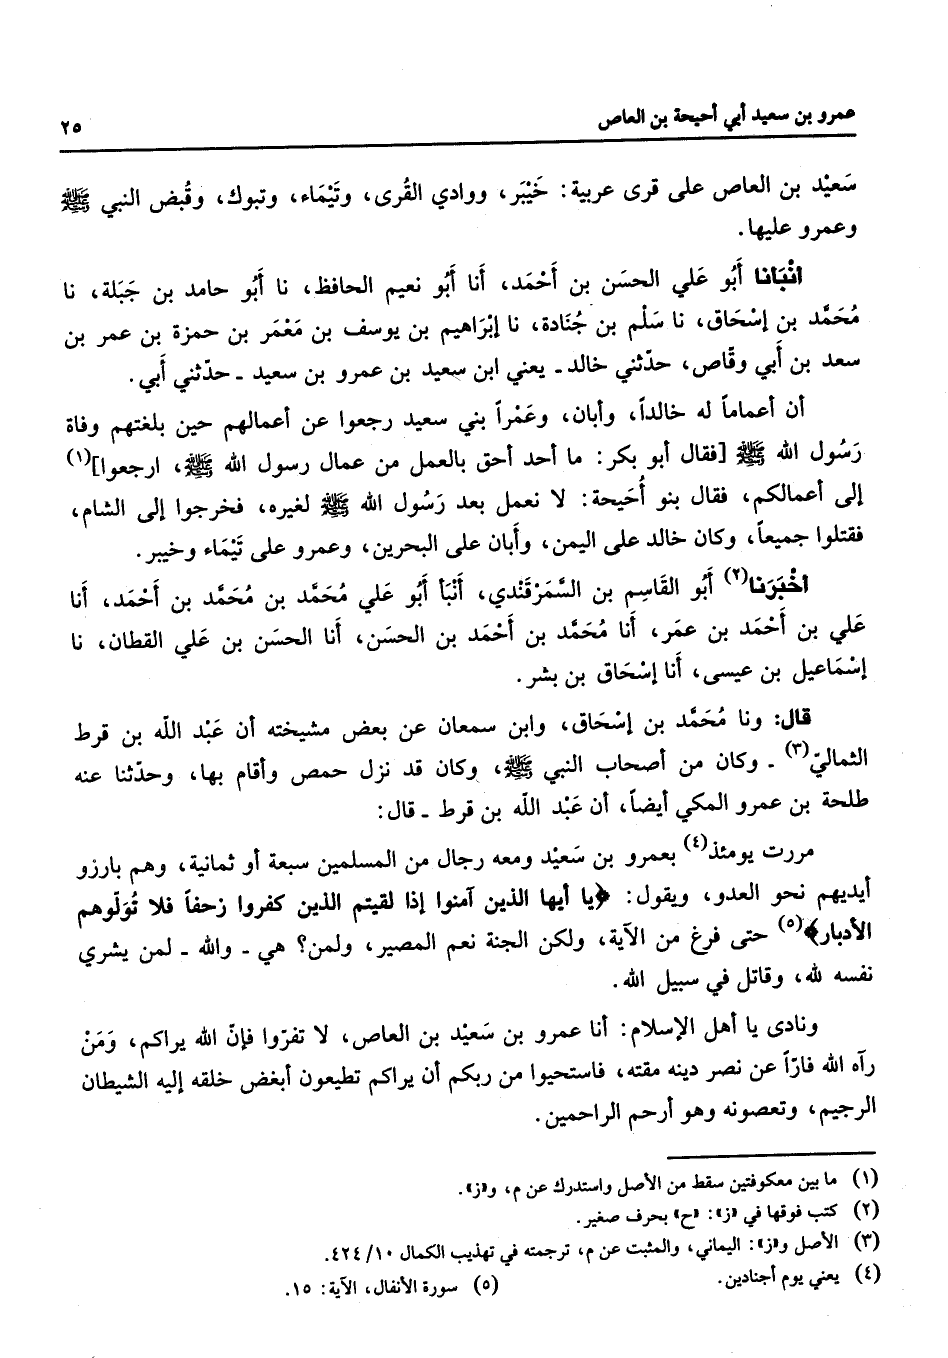 عمرو بن سعيد أبي أحيحة بن العاص
٢٥
سَعيْد بن العاص على قرى عربية: خَيْبَر، ووادي القُرى، وتَيْمَاء، وتبوك، وقُبض النبي ﷺ
وعمرو عليها.
أنْبَانا أَبُو عَلي الحسَن بن أَحْمَد، أَنا أَبُو نعيم الحافظ، نا أَبُو حامد بن جَبَلة، نا
مُحَمَّد بن إسْحَاق، نا سَلْم بن جُنَادة، نا إبْرَاهيم بن يوسف بن مَعْمَر بن حمزة بن عمر بن
سعد بن أَبي وقّاص، حدّثني خالد ـ يعني ابن سعيد بن عمرو بن سعيد ـ حدّثني أَبي.
أن أعماماً له خالداً، وأبان، وعَمْراً بني سعيد رجعوا عن أعمالهم حين بلغتهم وفاة
رَسُول الله ﷺ [فقال أبو بكر: ما أحد أحق بالعمل من عمال رسول الله ﷺ، ارجعوا](١)
إلى أعمالكم، فقال بنو أُحَيحة: لا نعمل بعد رَسُول الله ﷺ لغيره، فخرجوا إلى الشام،
فقتلوا جميعاً، وكان خالد على اليمن، وأَبان على البحرين، وعمرو على تَيْمَاء وخيبر.
أخْبَرَنا(٢) أَبُو القَاسِم بن السَّمَرْقَندي، أَنْبَأ أَبُو عَلي مُحَمَّد بن مُحَمَّد بن أَحْمَد، أَنا
عَلي بن أَحْمَد بن عمَر، أَنا مُحَمَّد بن أَحْمَد بن الحسَن، أَنا الحسَن بن عَلي القطان، نا
إسْمَاعيل بن عيسى، أَنا إسْحَاق بن بشر.
قال: ونا مُحَمَّد بن إسْحَاق، وابن سمعان عن بعض مشيخته أن عَبْد اللّه بن قرط
الثماليّ(٣) ـ وكان من أصحاب النبي ﷺ، وكان قد نزل حمص وأقام بها، وحدّثنا عنه
طلحة بن عمرو المكي أيضاً، أن عَبْد اللّه بن قرط ـ قال:
مررت يومئذ(٤) بعمرو بن سَعيْد ومعه رجال من المسلمين سبعة أو ثمانية، وهم بارزو
أيديهم نحو العدو، ويقول: ﴿يا أيها الذين آمنوا إذا لقيتم الذين كفروا زحفاً فلا تُوَلّوهم
الأدبار﴾(٥) حتى فرغ من الآية، ولكن الجنة نعم المصير، ولمن؟ هي ـ والله ـ لمن يشري
نفسه لله، وقاتل في سبيل الله.
ونادى يا أهل الإسلام: أنا عمرو بن سَعيْد بن العاص، لا تفرّوا فإنّ الله يراكم، وَمَنْ
رآه الله فارّاً عن نصر دينه مقته، فاستحيوا من ربكم أن يراكم تطيعون أبغض خلقه إليه الشيطان
الرجيم، وتعصونه وهو أرحم الراحمين.
(١) ما بين معكوفتين سقط من الأصل واستدرك عن م، و«ز».
(٢) كتب فوقها في «ز»: «ح» بحرف صغير.
(٣) الأصل و«ز»: اليماني، والمثبت عن م، ترجمته في تهذيب الكمال ١٠/ ٤٢٤.
(٤) يعني يوم أجنادين.
(٥) سورة الأنفال، الآية: ١٥.